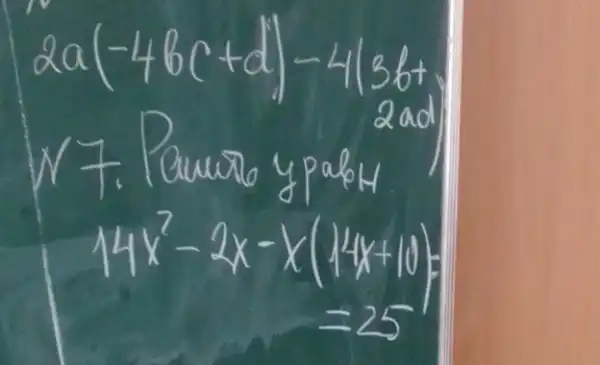 2a(-4bc+d)-4(3b+
2ad)
N7. Решить уравн
14x²-2x-x(14x+10)=
=25